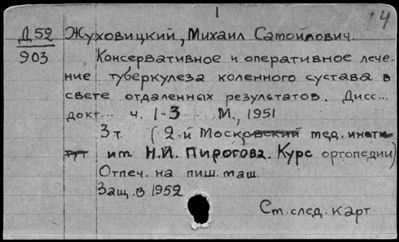 1
4
Д 52 Жуховицкий, Михаил Самойлович.
903 Консервативное и оперативное лече-
ние туберкулеза коленного сустава в
свете отдаленных результатов. Дисс...
докт... ч. 1-3 М., 1951
3 т. (2-й Московский мед. инсти-
тут им. Н.И. Пирогова. Курс ортопедии)
Отпеч. на пиш. маш.
Защ. в 1952
См. след. карт